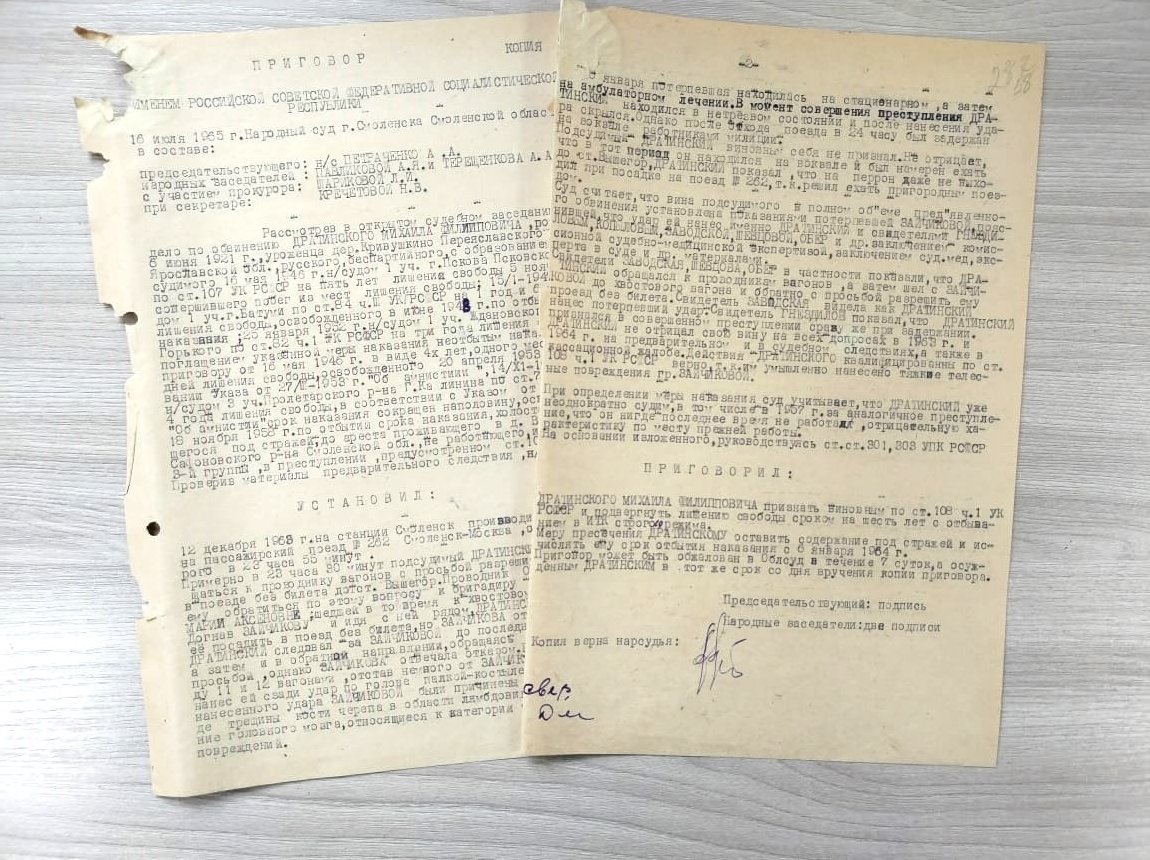 КОПИЯ
П Р И Г О В О Р
ИМЕНЕМ РОССИЙСКОЙ СОВЕТСКОЙ ФЕДЕРАТИВНОЙ СОЦИАЛИСТИЧЕСКОЙ
РЕСПУБЛИКИ
16 июля 1965 г.Народный суд г.Смоленска Смоленской област
в составе:
председательствующего: н/с ПЕТРАЧЕНКО А.А.
народных заседателей : ПАВЛИКОВОЙ А.Я.и ТЕРЕЩЕНКОВА А.А
с участием прокурора: ШАРИКОВОЙ Л.И.
при секретаре: КРЕЧЕТОВОЙ Н.В.
Рассмотрев в открытом судебном заседании
дело по обвинению ДРАТИНСКОГО МИХАИЛА ФИЛИППОВИЧА ,
6 июня 1921 г.,уроженца дер.Кривушкино Переяславского
Ярославской обл.,русского,беспартийного,с образованием
судимого 16 мая 1946 г.н/судом 1 уч. г.Пскова Псковской
по ст.107 УК РСФСР на пять лет лишения свободы 5 ноя
совершившего побег из мест лишения свободы; 15/1-194
дом 1 уч.г.Батуми по ст.84 ч.Ш УКГРСФСР на 1 год и 6
лишения свобода,освобожденного в июне 1948 г.по отбы
наказания ;25 января 1952 г.н/судом 1 уч. Ждановског
Горького по ст.82 ч.1 УК РСФСР на три года лишения
поглощением указанной меры наказания неотбытым нака
приговору от 16 мая 1946 г. в виде 4х лет,одного мес
дней лишения свободы,освобожденного 20 апреля 1953
вании Указа от 27/Ш-1953 г."Об амнистии" ;14/XI-1
н/судом 3 уч.Пролетарского р-на Г.Калинина по ст.7
4 года лишения свободы,в соответствии с Указом от
"Об амнистии"срок наказания сокращен наполовину,ос
18 ноября 1958 г.по отбытии срока наказания,холост
щегося под стражей,до ареста проживающего в д. В
Сафоновского р-на Смоленской обл.,не работающего,и
3-й группы ,в преступлении ,предусмотренном ст.10
Проверив материалы предварительного следствия ,н/
У С Т А Н О В И Л :
12 декабря 1963 г.на станции Смоленск производи
на пассажирский поезд № 262 Смоленск-Москва ,о
рого в 23 часа 55 минут.
Примерно в 23 часа 30 минут подсудимый ДРАТИНСКИ
щаться к проводнику вагонов с просьбой разреши
в поезде без билета до ст. Вышегор.Проводник О
ему обратиться по этому вопросу к бригадиру
МАРИИ АКСЕНОВНЕ ,шедшей в то время к хвостовом
Догнав ЗАЙЧИКОВУ и идя с ней рядом,ДРАТИНС
её посадить в поезд без билета,но ЗАЙЧИКОВА от
ДРАТИНСКИЙ следовал за ЗАЙЧИКОВОЙ до послед
а затем и в обратном направлении,обращаясь
просьбой ,однако ЗАЙЧИКОВА отвечала отказом.
ду 11 и 12 вагонами ,отстав немного от ЗАЙЧИК
нанес ей сзади удар по голове палкой-костыле
нанесенного удара ЗАЙЧИКОВОЙ были причинены
де трещины кости черепа в области лямбдови
ние головного мозга,относящиеся к категории
повреждений.
-2-
с января потерпевшая находилась на стационарном ,а затем
на амбулаторном лечении.В момент совершения преступления ДРА-
ТИНСКИЙ находился в нетрезвом состоянии и после нанесения уда-
ра скрылся.Однако после отхода поезда в 24 часу был задержан
на вокзале работниками милиции.
Подсудимый ДРАТИНСКИЙ виновным себя не признал.Не отрицает,
что в тот период он находился на вокзале и был намерен ехать
до ст.Вышегор,ДРАТИНСКИЙ показал ,что на перрон даже не выхо-
дил при посадка на поезд № 262,т.к.решил ехать пригородным поез-
дом.
Суд считает,что вина подсудимого в полном об"еме пред"явленно-
го обвинения установлена показаниями потерпевшей ЗАЙЧИКОВОЙ,пояс-
нившей,что удар ей нанес именно ДРАТИНСКИЙ и свидетелями ГНЕЗДИ-
ЛОВЫМ,КОПЫЛОВЫМ,ЗАВОДСКОЙ,ШЕВЦОВОЙ,ОБЕР и др.заключением комис-
сионной судебно-медицинской экспертизой,заключением суд.мед,экс-
перта в суде и др. материалами.
Свидетели ЗАВОДСКАЯ,ШЕВЦОВА,ОБЕР в частности показали,что ДРА-
ТИНСКИЙ обращался к проводникам вагонов ,а затем шел с ЗАЙЧИ-
КОВОЙ до хвостового вагона и обратно с просьбой разрешить ему
проезд без билета.Свидетель ЗАВОДСКАЯ видела как ДРАТИНСКИЙ
нанес потерпевшей удар.Свидетель ГНЕЗДИЛОВ показал,что ДРАТИНСКИЙ
признался в совершенном преступлении сразу же при задержании.
ДРАТИНСКИЙ не отрицал свою вину на всех допросах в 1963 г. и
1964 г. на предварительном и в судебном следствиях,а также в
кассационной жалобе.Действия ДРАТИНСКОГО квалифицированны по ст.
108 ч.1 УК РСФСР верно,т.к.им умышленно нанесено тяжкие телес-
ные повреждения гр.ЗАЙЧИКОВОЙ.
При определении меры наказания суд учитывает,что ДРАТИНСКИЙ уже
неоднократно судим,в том числе в 1957 г.за аналогичное преступле-
ние,что он нигде последнее время не работал ,отрицательную ха-
рактеристику по месту прежней работы.
На основании изложенного,руководствуясь ст.ст.301,303 УПК РСФСР
П Р И Г О В О Р И Л :
ДРАТИНСКОГО МИХАИЛА ФИЛИППОВИЧА признать виновным по ст.108 ч.1 УК
РСФСР и подвергнуть лишению свободы сроком на шесть лет с отбыва-
нием в ИТК строгого режима.
Меру пресечения ДРАТИНСКОМУ оставить содержание под стражей и ис-
числять ему срок отбытия наказания с 6 января 1964 г.
Приговор может быть обжалован в Облсуд в течение 7 суток,а осуж-
денным ДРАТИНСКИМ в тот же срок со дня вручения копии приговора.
Председательствующий: подпись
Народные заседатели:две подписи
Копия верна нарсудья:
свер.